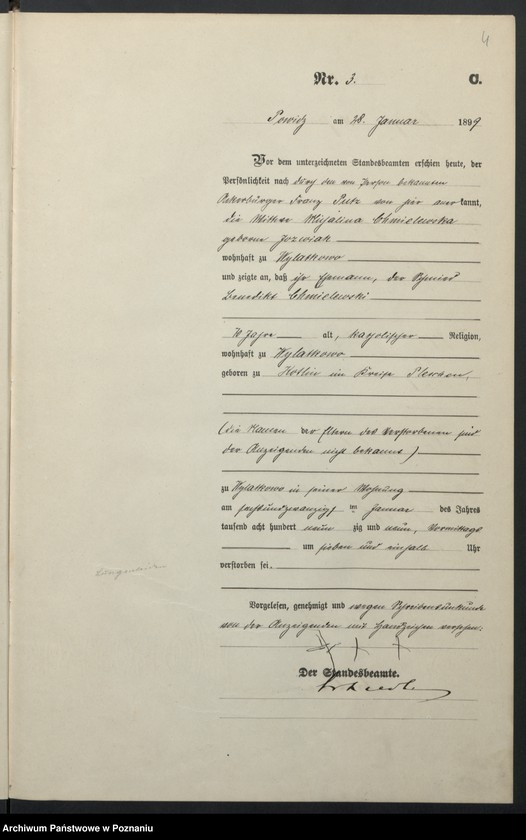 4
Nr. 3. C.
Powidz am 28. Januar 1899
Vor dem unterzeichneten Standesbeamten erschien heute, der
Persönlichkeit nach durch den von Person bekannten
Ackerbürger Franz von hier anerkannt,
die Wittwe Michalina Chmielewska
geborene Jozwiak
wohnhaft zu Wylatkowo
und zeigte an, daß ihr Ehemann, der Schmied
Benedikt Chmielewski
70 Jahre alt, katholischer Religion,
wohnhaft zu Wylatkowo
geboren zu Kotlin im Kreise Pleschen,
(die Namen der Eltern des Verstorbenen sind
der Anzeigenden nicht bekannt)
zu Wylatkowo in seiner Wohnung
am sechsundzwanzigsten Januar des Jahres
tausend acht hundert neunzig und neun, Vormittags
um sieben und einhalb Uhr
verstorben sei.
Vorgelesen, genehmigt und wegen Schreibensunkunde
von der Anzeigenden mit Handzeichen versehen.
+ + +
Der Standesbeamte.
Archiwum Państwowe w Poznaniu